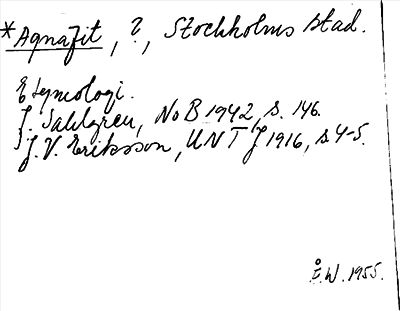 *Agnafit, ?, Stockholms stad.
Etymologi.
J. Sahlgren, NoB 1942, s. 146.
J. V. Eriksson, UNT J 1916, s. 4-5.
Å. W. 1955.